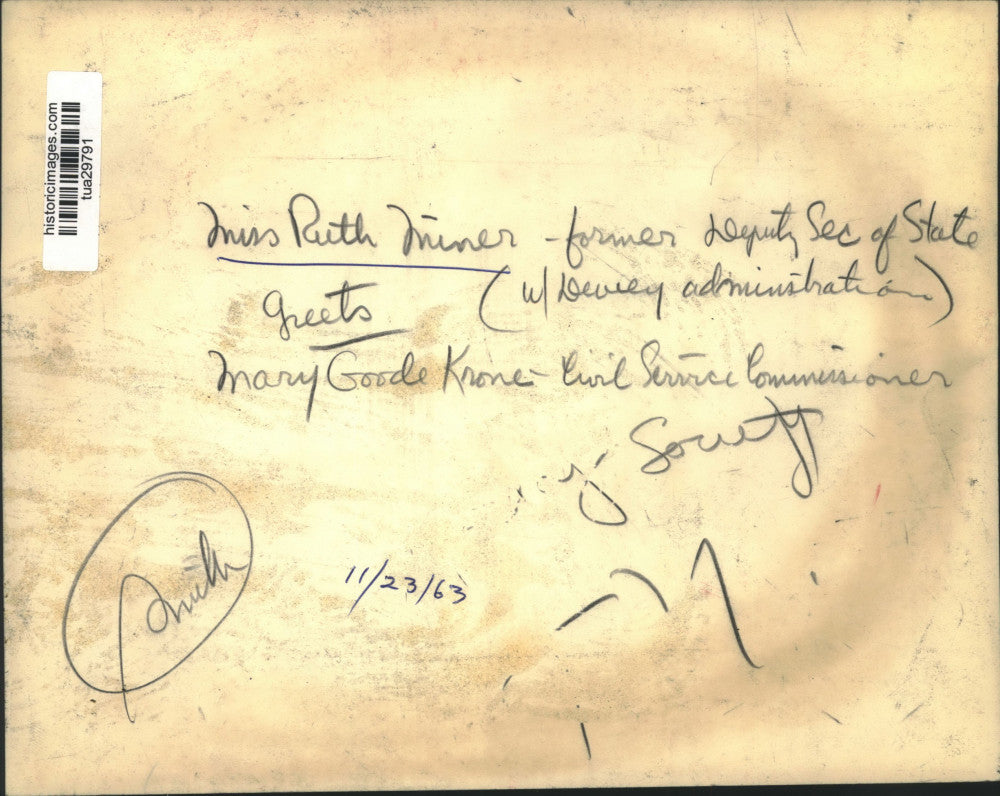 historicimages.com
tua29791
Miss Ruth Miner - former Deputy Sec of State
Greets (w/ Dewey administration)
Mary Goode Krone - Civil Service Commissioner
Society
Smith
11/23/63